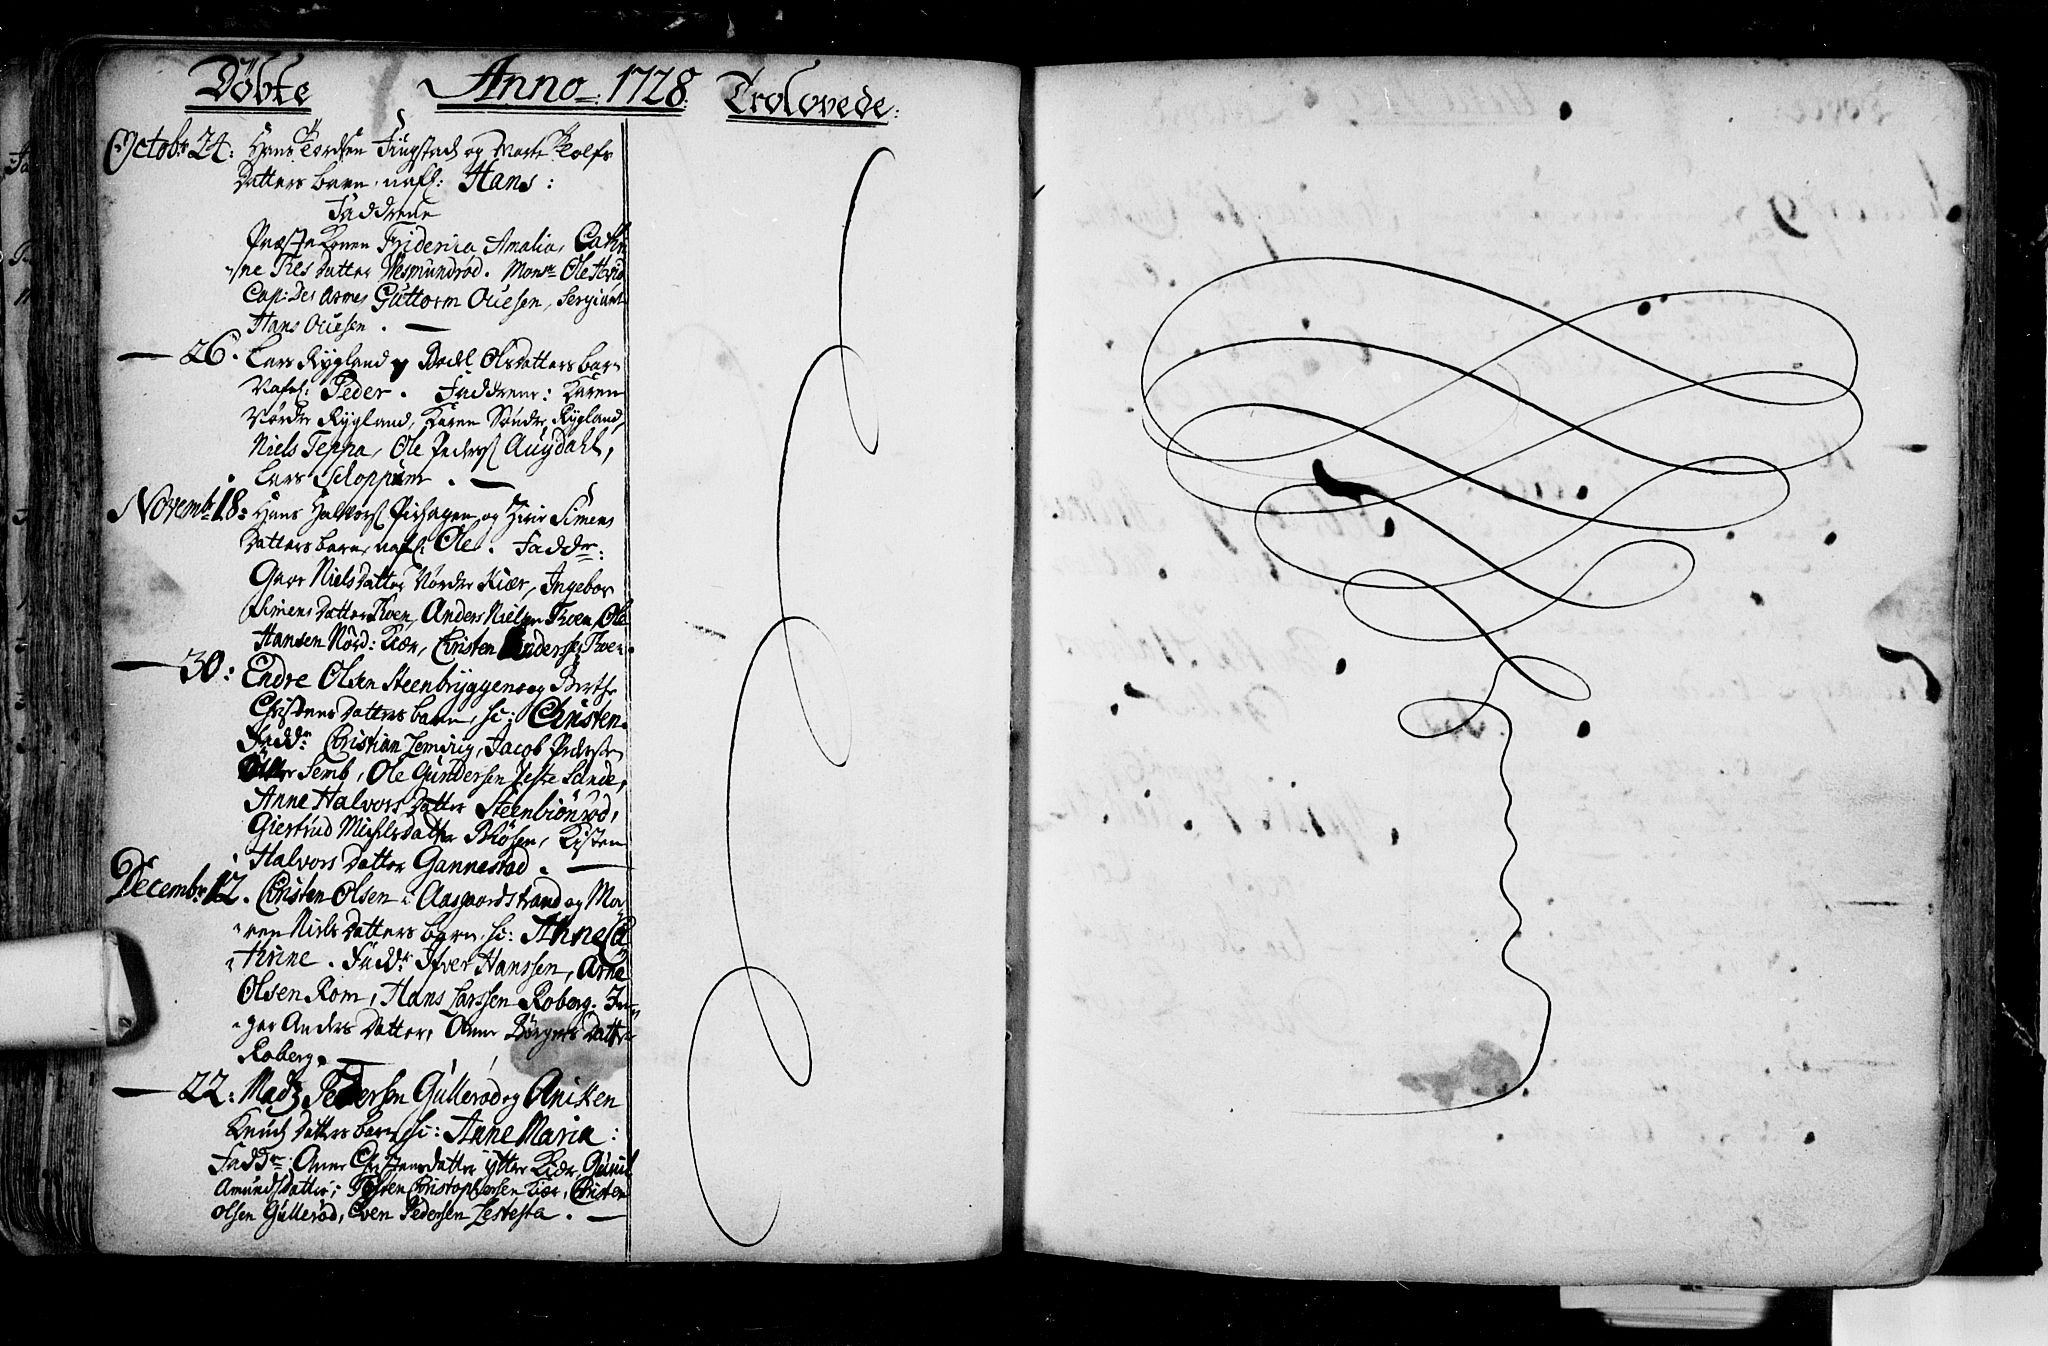 Döbte Anno 1728. Trolovede:
Octobr 24: Hans Tordsen Fingstad og Marte Rolfs
Datters barn, nafl: Hans:
Faddrene
Præste Konen Friderica Amalia, Cathri
ne Nels Datter Wesmundrød. Monsr Ole
Cap: Des Armes Guttorm Ouesen, Sergiant
Hans Ouesen. —
— 26. Lars Rygland og Bodil Olsdatters barn
Nafl: Peder. Faddrene: Karen
Nørdre Rygland, Karen Søndre Rygland,
Niels Teppa, Ole Peders Augdahl,
Lars Schoppum. —
Novembr 18: Hans Halvors og Siri Simens
Datters barn, nafl: Ole. Faddr:
Niels Datter Nordre Kiær, Ingebor
Simens Datter Thoen, Anders Nielsen Thoen, Ole
Hansen Nørd: Kiær, Christen Anders Thoen.
— 30: Endre Olsen Steenbryggen og Berthe
Christens Datters barn, hc: Christen.
Faddr Christian Lemvig, Jacob Pedersen
Semb, Ole Gundersen Sande,
Anne Halvors Datter Steenbiönrød,
Giertrud Michls Datter Røsen, Kisten
Halvors Datter Gannestad. —
Decembr 12. Christen Olsen i Aasgaardstrand og Ma
ren Niels Datters barn, hc: Anne Ca
thrine. Faddr: Ifver Hanssen, Arne
Olsen Rom, Hans Larssen Roberg. In
ger Anders Datter, Anne Børgers Datter
Roberg. —
— 22: Madz Pedersen Gullerød og Aniken
Knuds Datters barn hc: Anne Maria:
Faddr: Anne Christensdatter ytter Kiær, Gunil
Amunds Datter; Christophersen Kiær, Christen
Olsen Gullerød, Even Pedersen . —